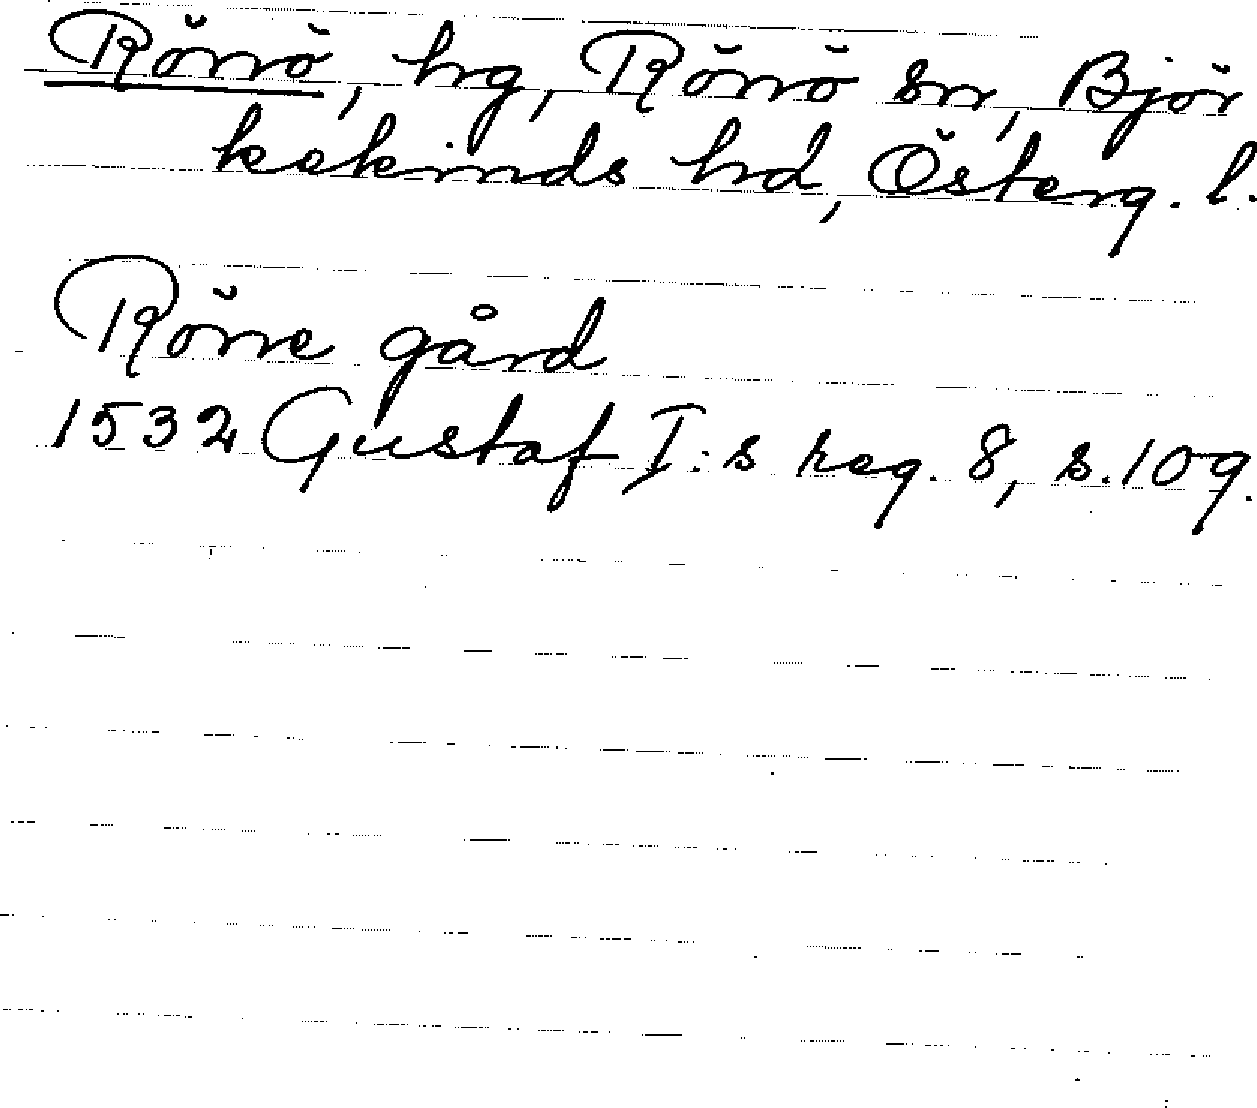 Rönö, hg, Rönö sn, Björ
kekinds hd, Österg. l.
Röne gård
1532 Gustaf I:s reg. 8, s. 109.